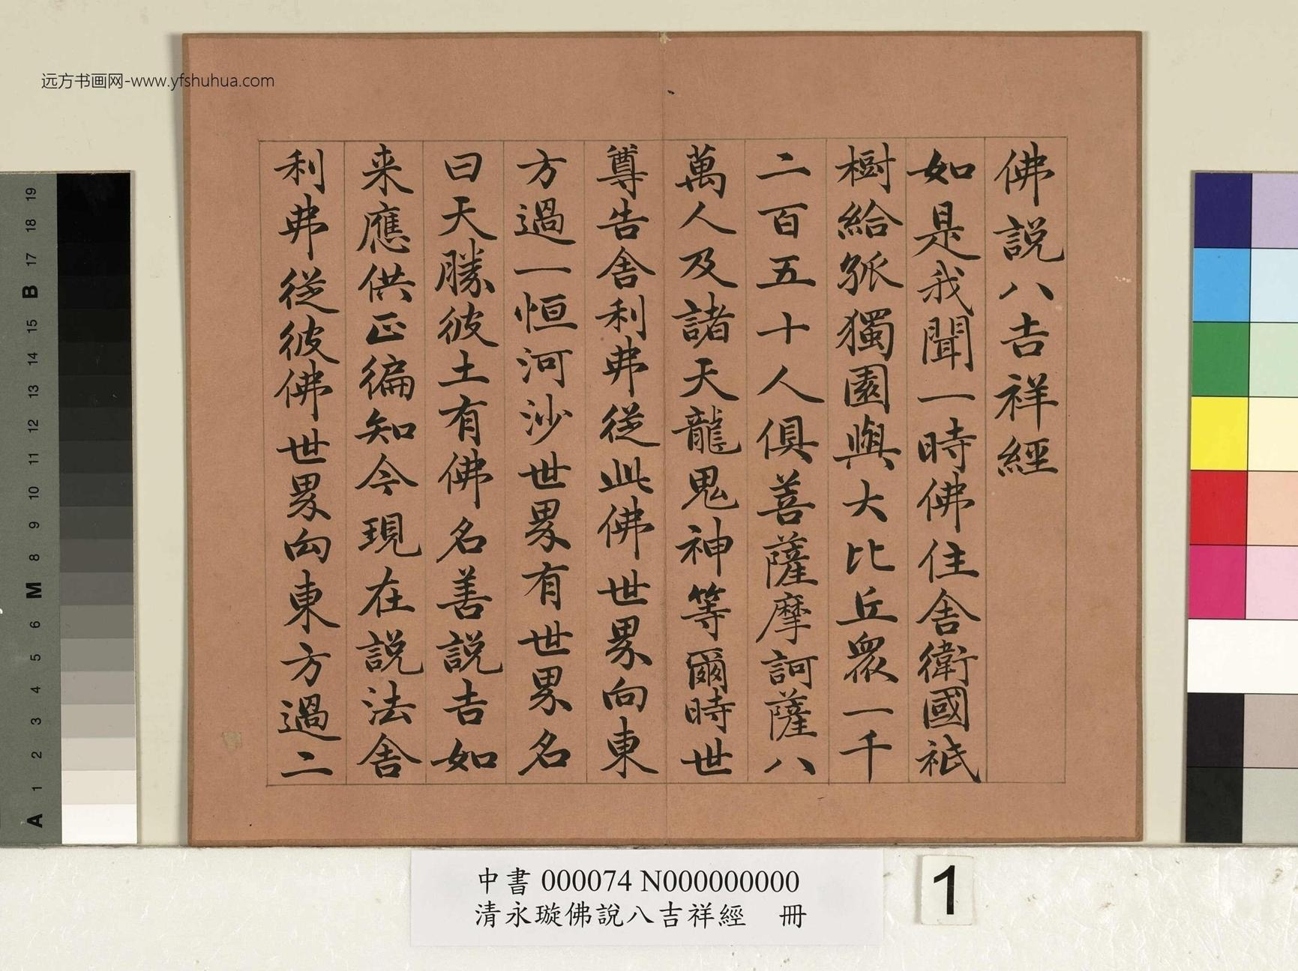 远方书画网-www.yfshuhua.com
佛説八吉祥經
如是我聞一時佛住舎衛國祇
樹給孤獨園與大比丘衆一千
二百五十人俱菩薩摩訶薩八
萬人及諸天龍鬼神等爾時世
尊告舎利弗從此佛世界向東
方過一恒河沙世界有世界名
曰天勝彼土有佛名善説吉如
来應供正徧知今現在説法舎
利弗從彼佛世界向東方過二
19
18
17
B
15
14
13
12
11
10
9
8
M
6
5
4
3
2
1
A
中書 000074 N000000000
清永璇佛說八吉祥經 冊
1